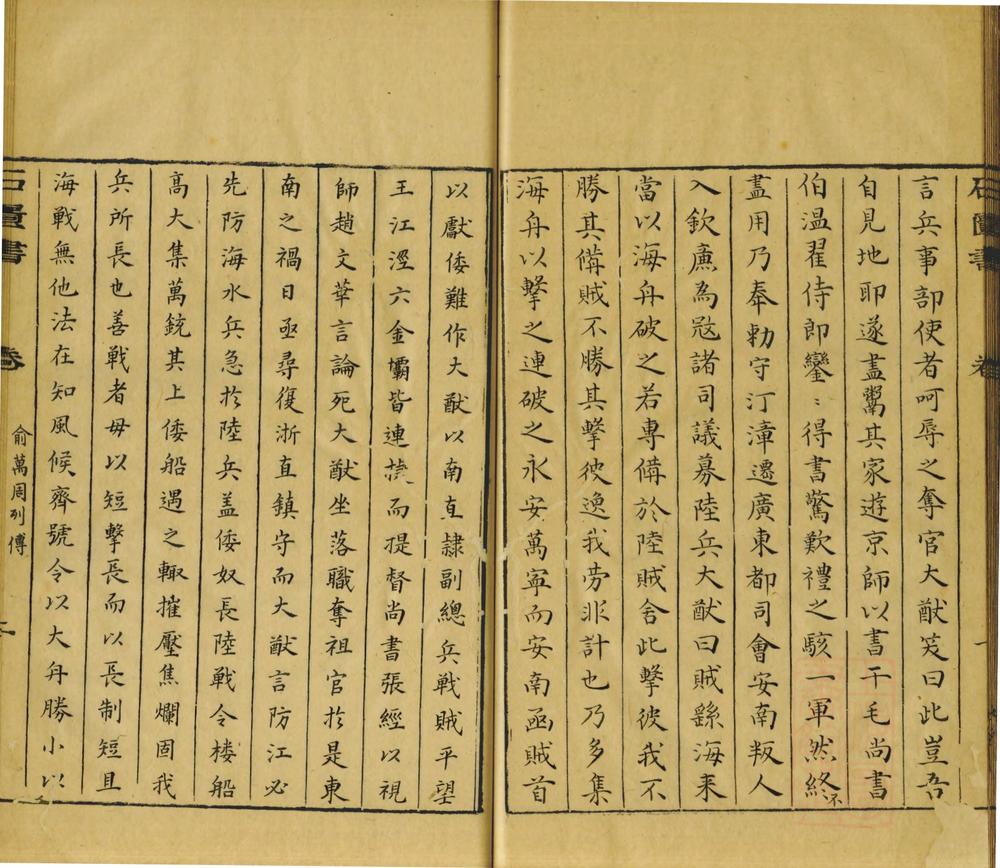 石匱書
卷
言兵事部使者呵辱之奪官大猷笑曰此豈吾
自見地耶遂盡鬻其家遊京師以書干毛尚書
伯溫翟侍郎鑾〻得書驚歎禮之駭一軍然終不
盡用乃奉勅守汀漳遷廣東都司會安南叛人
入欽廉為寇諸司議募陸兵大猷曰賊繇海来
當以海舟破之若專備於陸賊舍此擊彼我不
勝其備賊不勝其擊彼逸我勞非計也乃多集
海舟以擊之連破之永安萬寧而安南函賊首
以獻倭難作大猷以南直隸副總兵戰賊平望
王江涇六金壩皆連捷而提督尚書張經以視
師趙文華言論死大猷坐落職奪祖官於是東
南之禍日亟尋復浙直鎮守而大猷言防江必
先防海水兵急於陸兵盖倭奴長陸戰令楼船
高大集萬銃其上倭船遇之輙摧壓焦爛固我
兵所長也善戰者毋以短擊長而以長制短且
海戰無他法在知風候齊號令以大舟勝小以
俞萬周列傳
石匱書
卷